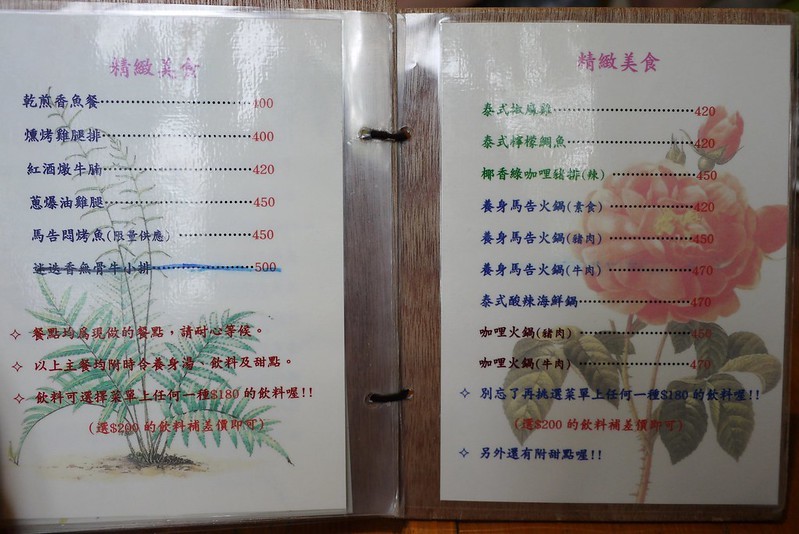 精緻美食
乾煎香魚餐 400
燻烤雞腿排 400
紅酒燉牛腩 420
蔥爆油雞腿 450
馬告悶烤魚(限量供應) 450
迷迭香無骨牛小排 500
✧ 餐點均為現做的餐點，請耐心等候。
✧ 以上主餐均附時令養身湯 飲料及甜點。
✧ 飲料可選擇菜單上任何一種$180的飲料喔!!
(選$200的飲料補差價即可)
精緻美食
泰式椒麻雞 420
泰式檸檬鯛魚 420
椰香綠咖哩豬排(辣) 450
養身馬告火鍋(素食) 420
養身馬告火鍋(豬肉) 450
養身馬告火鍋(牛肉) 470
泰式酸辣海鮮鍋 470
咖哩火鍋(豬肉) 450
咖哩火鍋(牛肉) 470
✧ 別忘了再挑選菜單上任何一種$180的飲料喔!!
(選$200的飲料補差價即可)
✧ 另外還有附甜點喔!!